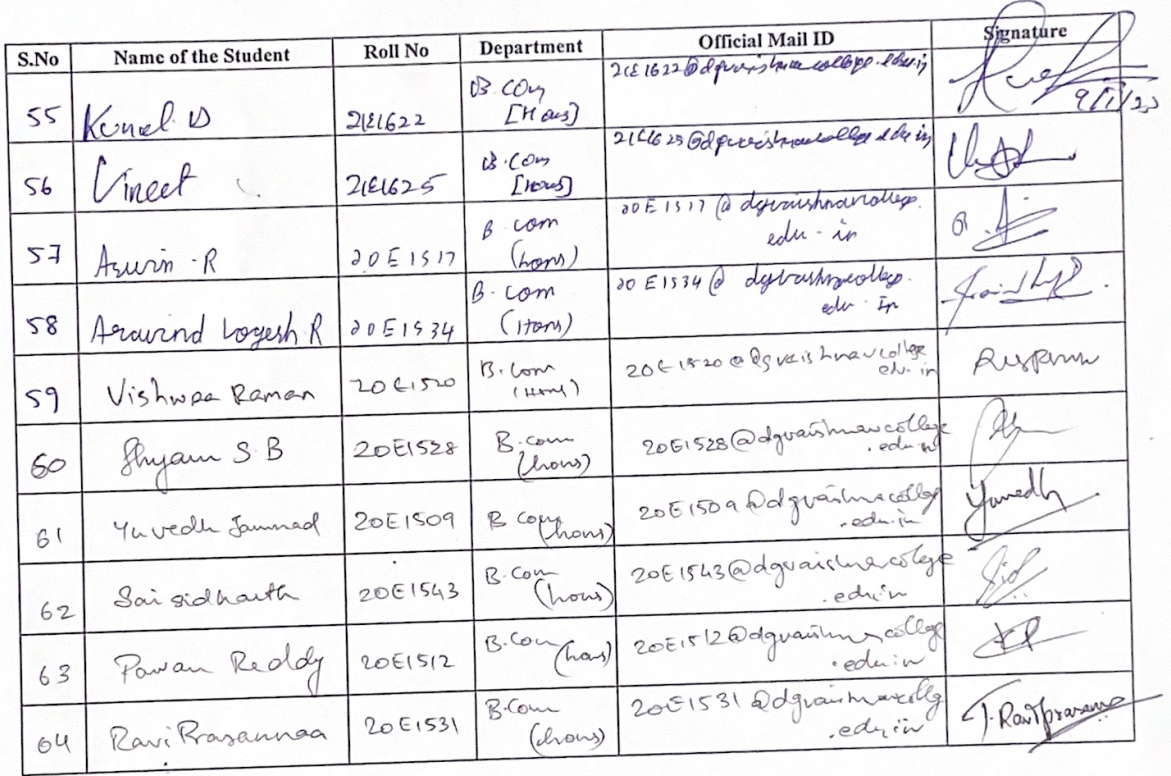 S.No Name of the Student Roll No Department Official Mail ID Signature
55 Kunal D 21E1622 B.Com [Hons] 21E1622@dgvaishnavcollege.edu.in 9/1/23
56 Vineet 21E1625 B.Com [Hons] 21E1625@dgvaishnavcollege.edu.in
57 Aswin .R 20E1517 B.com (hons) 20E1517@dgvaishnavcollege.edu.in
58 Aravind Logesh R 20E1534 B.com (Hons) 20E1534@dgvaishnavcollege.edu.in
59 Vishwaa Raman 20E1520 B.Com (Hons) 20E1520@dgvaishnavcollege edu.in
60 Shyam S B 20E1528 B.com (hons) 20E1528@dgvaishnavcollege.edu.in
61 Yuvedh Jammad 20E1509 B Com (hons) 20E1509@dgvaishnavcolleg.edu.in Yuvedh
62 Sai sidharth 20E1543 B.Com (hons) 20E1543@dgvaishnavcollege.edu.in
63 Pawan Reddy 20E1512 B.Com (hons) 20E1512@dgvaishnavcollege.edu.in
64 Ravi Prasannaa 20E1531 B.Com (hons) 20E1531@dgvaishnavcolleg.edu.in T.Raviprasanna